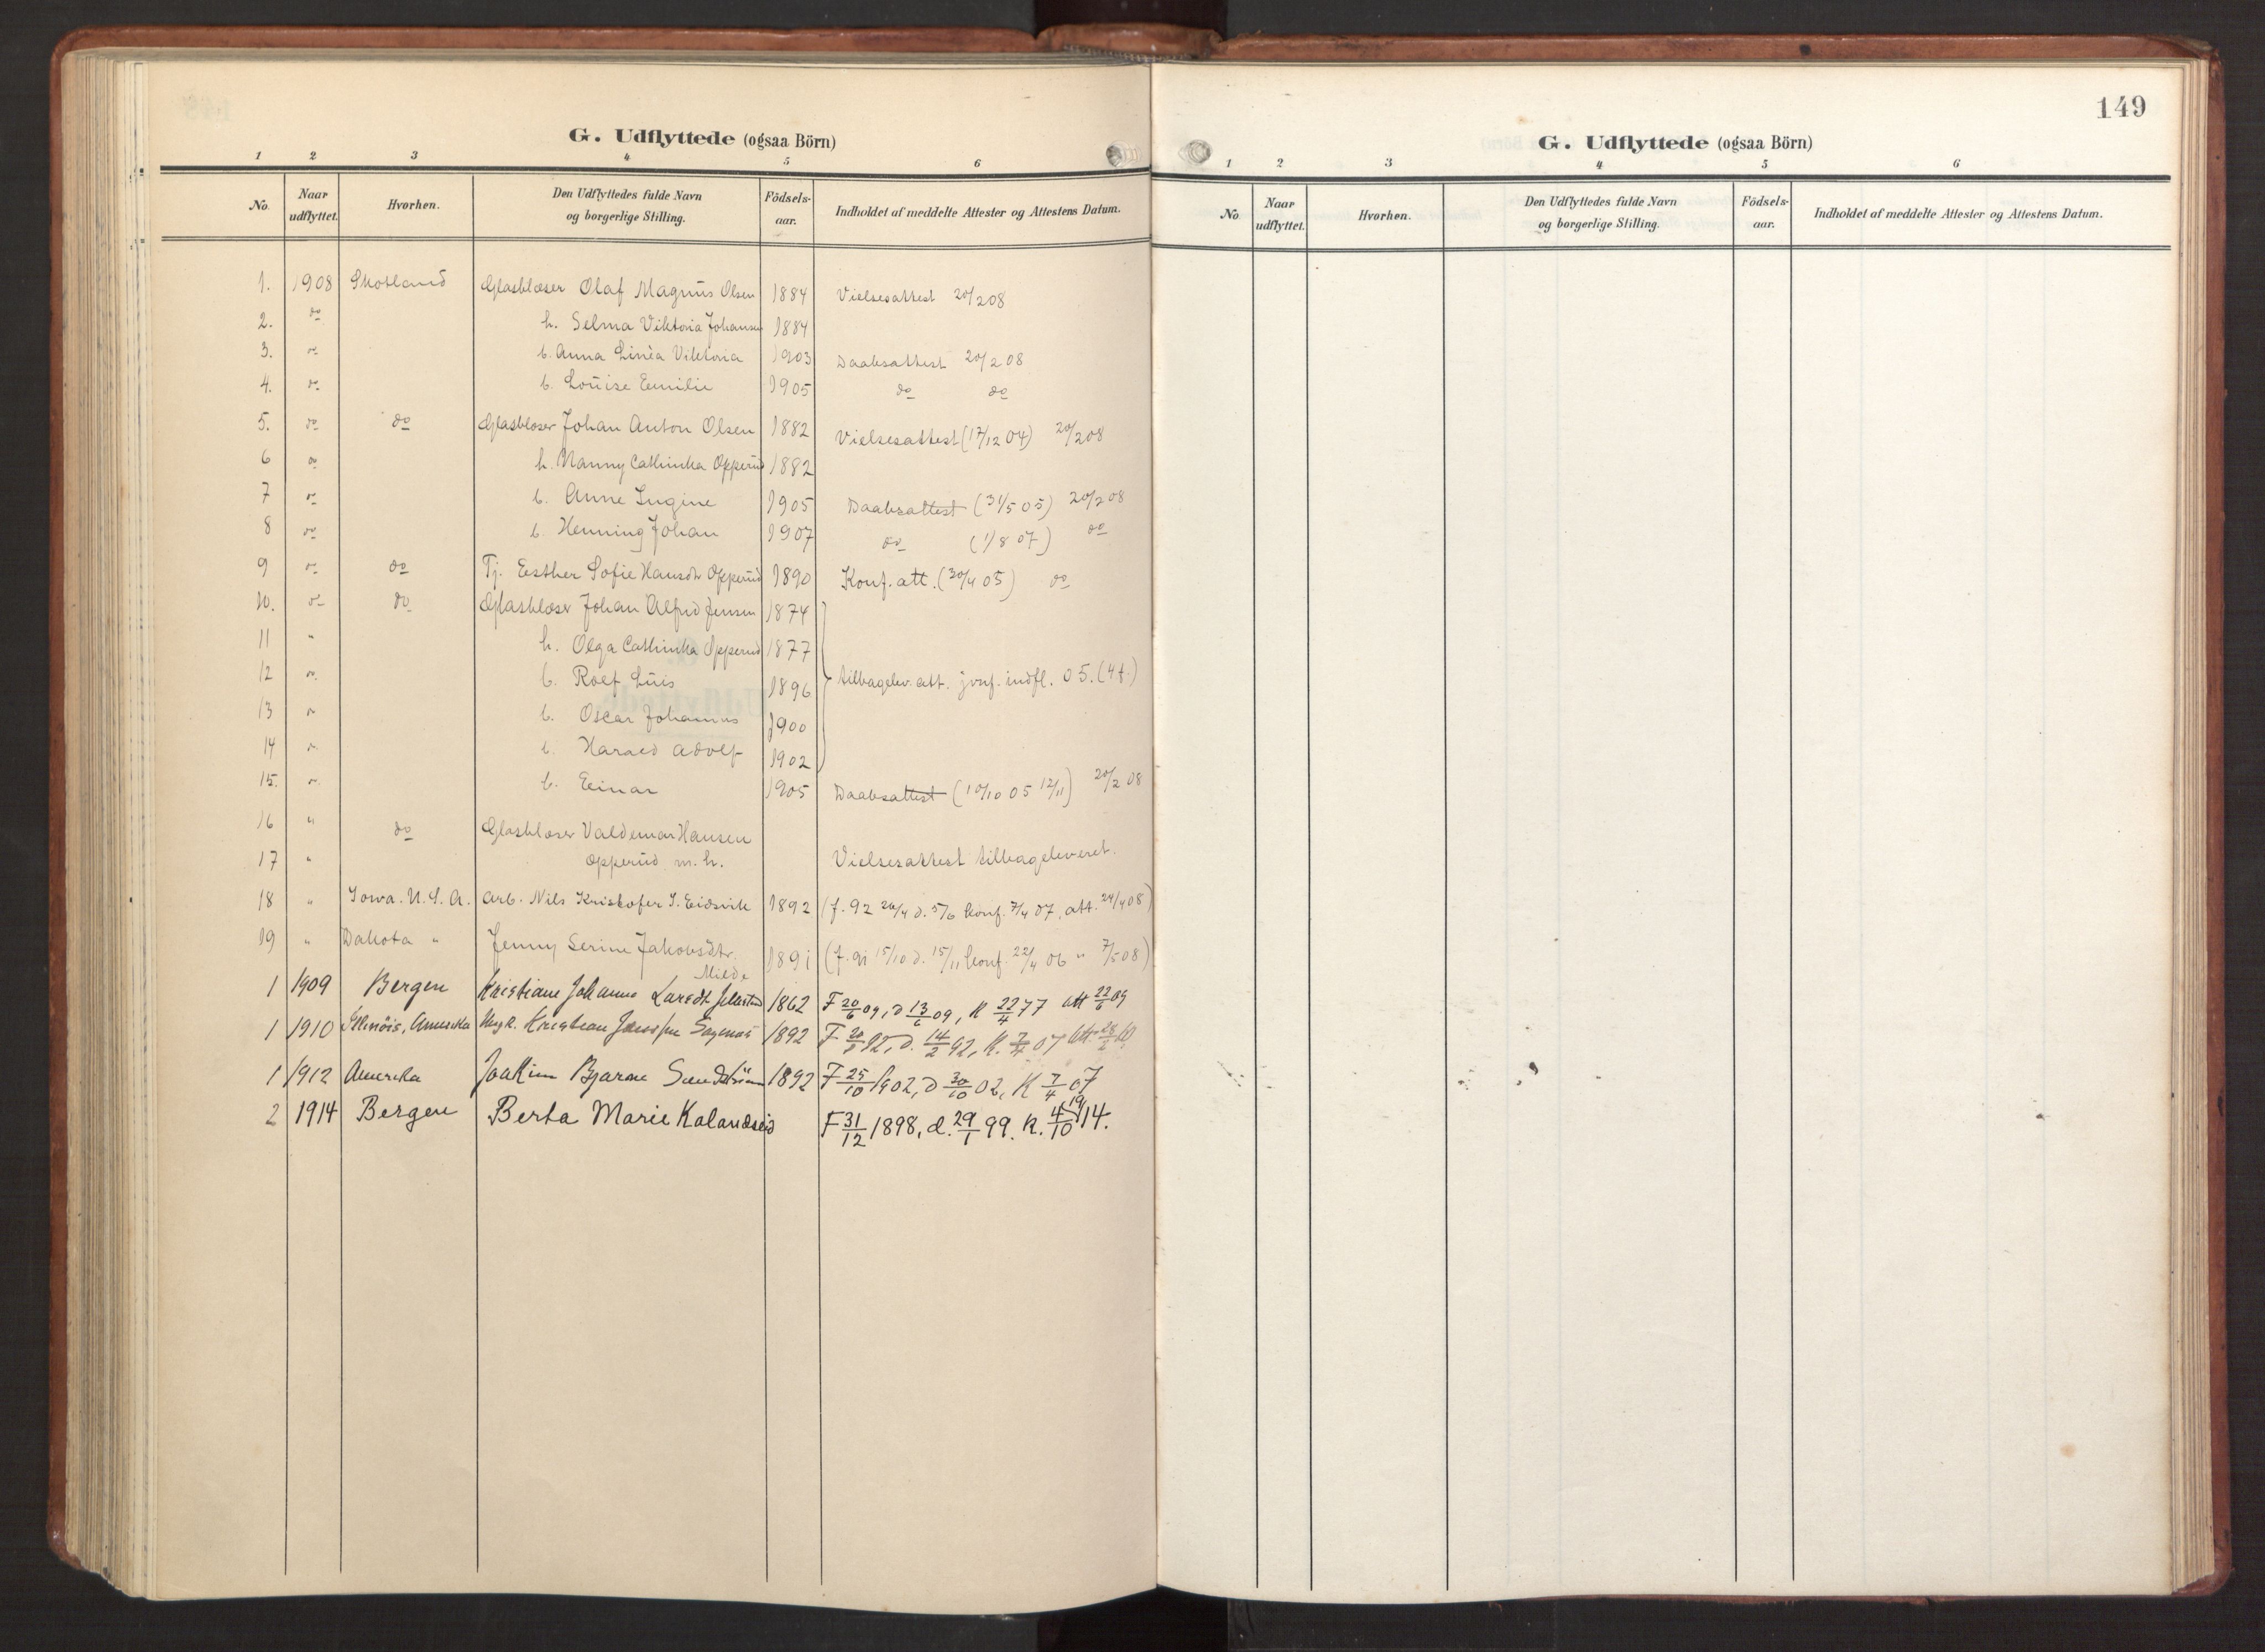 G. Udflyttede (ogsaa Börn)
1 2 3 4 5 6
No. Naar udflyttet. Hvorhen. Den Udflyttedes fulde Navn og borgerlige Stilling. Födsels-aar. Indholdet af meddelte Attester og Attestens Datum.
1. 1908 Skotland Glasblæser Olaf Magnus Olsen 1884 Vielsesattest 20/2 08
2. do h. Selma Viktoria Johansen 1884
3. do b. Anna Linèa Viktoria 1903 Daabsattest 20/2 08
4. do b. Louise Emilie 1905 do do
5. do do Glasblæser Johan Anton Olsen 1882 Vielsesattest (17/12 04) 20/2 08
6 do h. Nanny Cathinka Opperud 1882
7 do b. Anne Ingine 1905 Daabsattest (31/5 05) 20/2 08
8 do b. Henning Johan 1907 do (1/8 07) do
9 do do Tj. Esther Sofie Hansdtr Opperud 1890 Konf. att. (30/4 05) do
10. do do Glasblæser Johan Alfred Jensen 1874
11 " h. Olga Cathinka Opperud 1877
12 do b. Rolf Luis 1896 tilbagelev. att. jvnf. indfl. 05. (4 f.)
13 do b. Oscar Johannes 1900
14 do b. Harald Adolf 1902
15. do b. Einar 1905 Daabsattest (10/10 05 12/11) 20/2 08
16 " do Glasblæser Valdemar Hansen
17 " Opperud m. h. Vielsesattest tilbageleveret.
18 " Iowa. U. S. A. Arb. Nils Kristofer J. Eidsvik 1892 (f. 92 26/4 d. 5/6 konf. 7/4 07. att. 24/4 08)
19 " Dakota " Jenny Serine Jakobsdtr. 1891 (f. 91 15/10 d. 15/11 konf. 22/4 06 " 7/5 08)
Milde
1 1909 Bergen Kristiane Johanne Larsdt 1862 F 20/6 09, D 13/6 09, K 22/4 77 Att 22/6 09
1 1910 Illinöis, Amerika Ungk. Kristian Sagenæs 1892 F 92, D. 14/2 92, K. 7/4 07 Att. 28/2 10
1 1912 Amerika Joakim Bjarne 1892 F 25/10 1902, D 30/10 02, K 7/4 07
2 1914 Bergen Berta Marie Kalandseid F 31/12 1898, d. 29/1 99. K. 4/10 19 14.
149
G. Udflyttede (ogsaa Börn)
1 2 3 4 5 6
No. Naar udflyttet. Hvorhen. Den Udflyttedes fulde Navn og borgerlige Stilling. Födsels-aar. Indholdet af meddelte Attester og Attestens Datum.